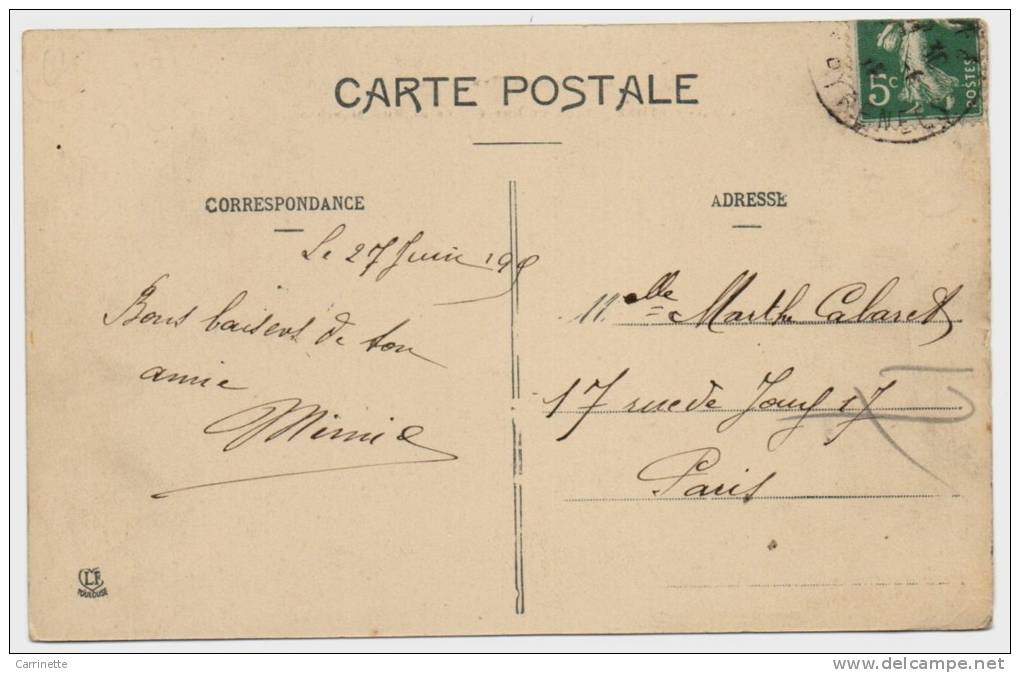 CARTE POSTALE
5c
POSTES
PYRENEES
CORRESPONDANCE
Le 27 Juin 1909
Bons baisers de ton
amie
Mimie
ADRESSE
Mlle Marthe Cabaret
17 rue de Jouy 17
Paris
LF
TOULOUSE
Carrinette
www.delcampe.net